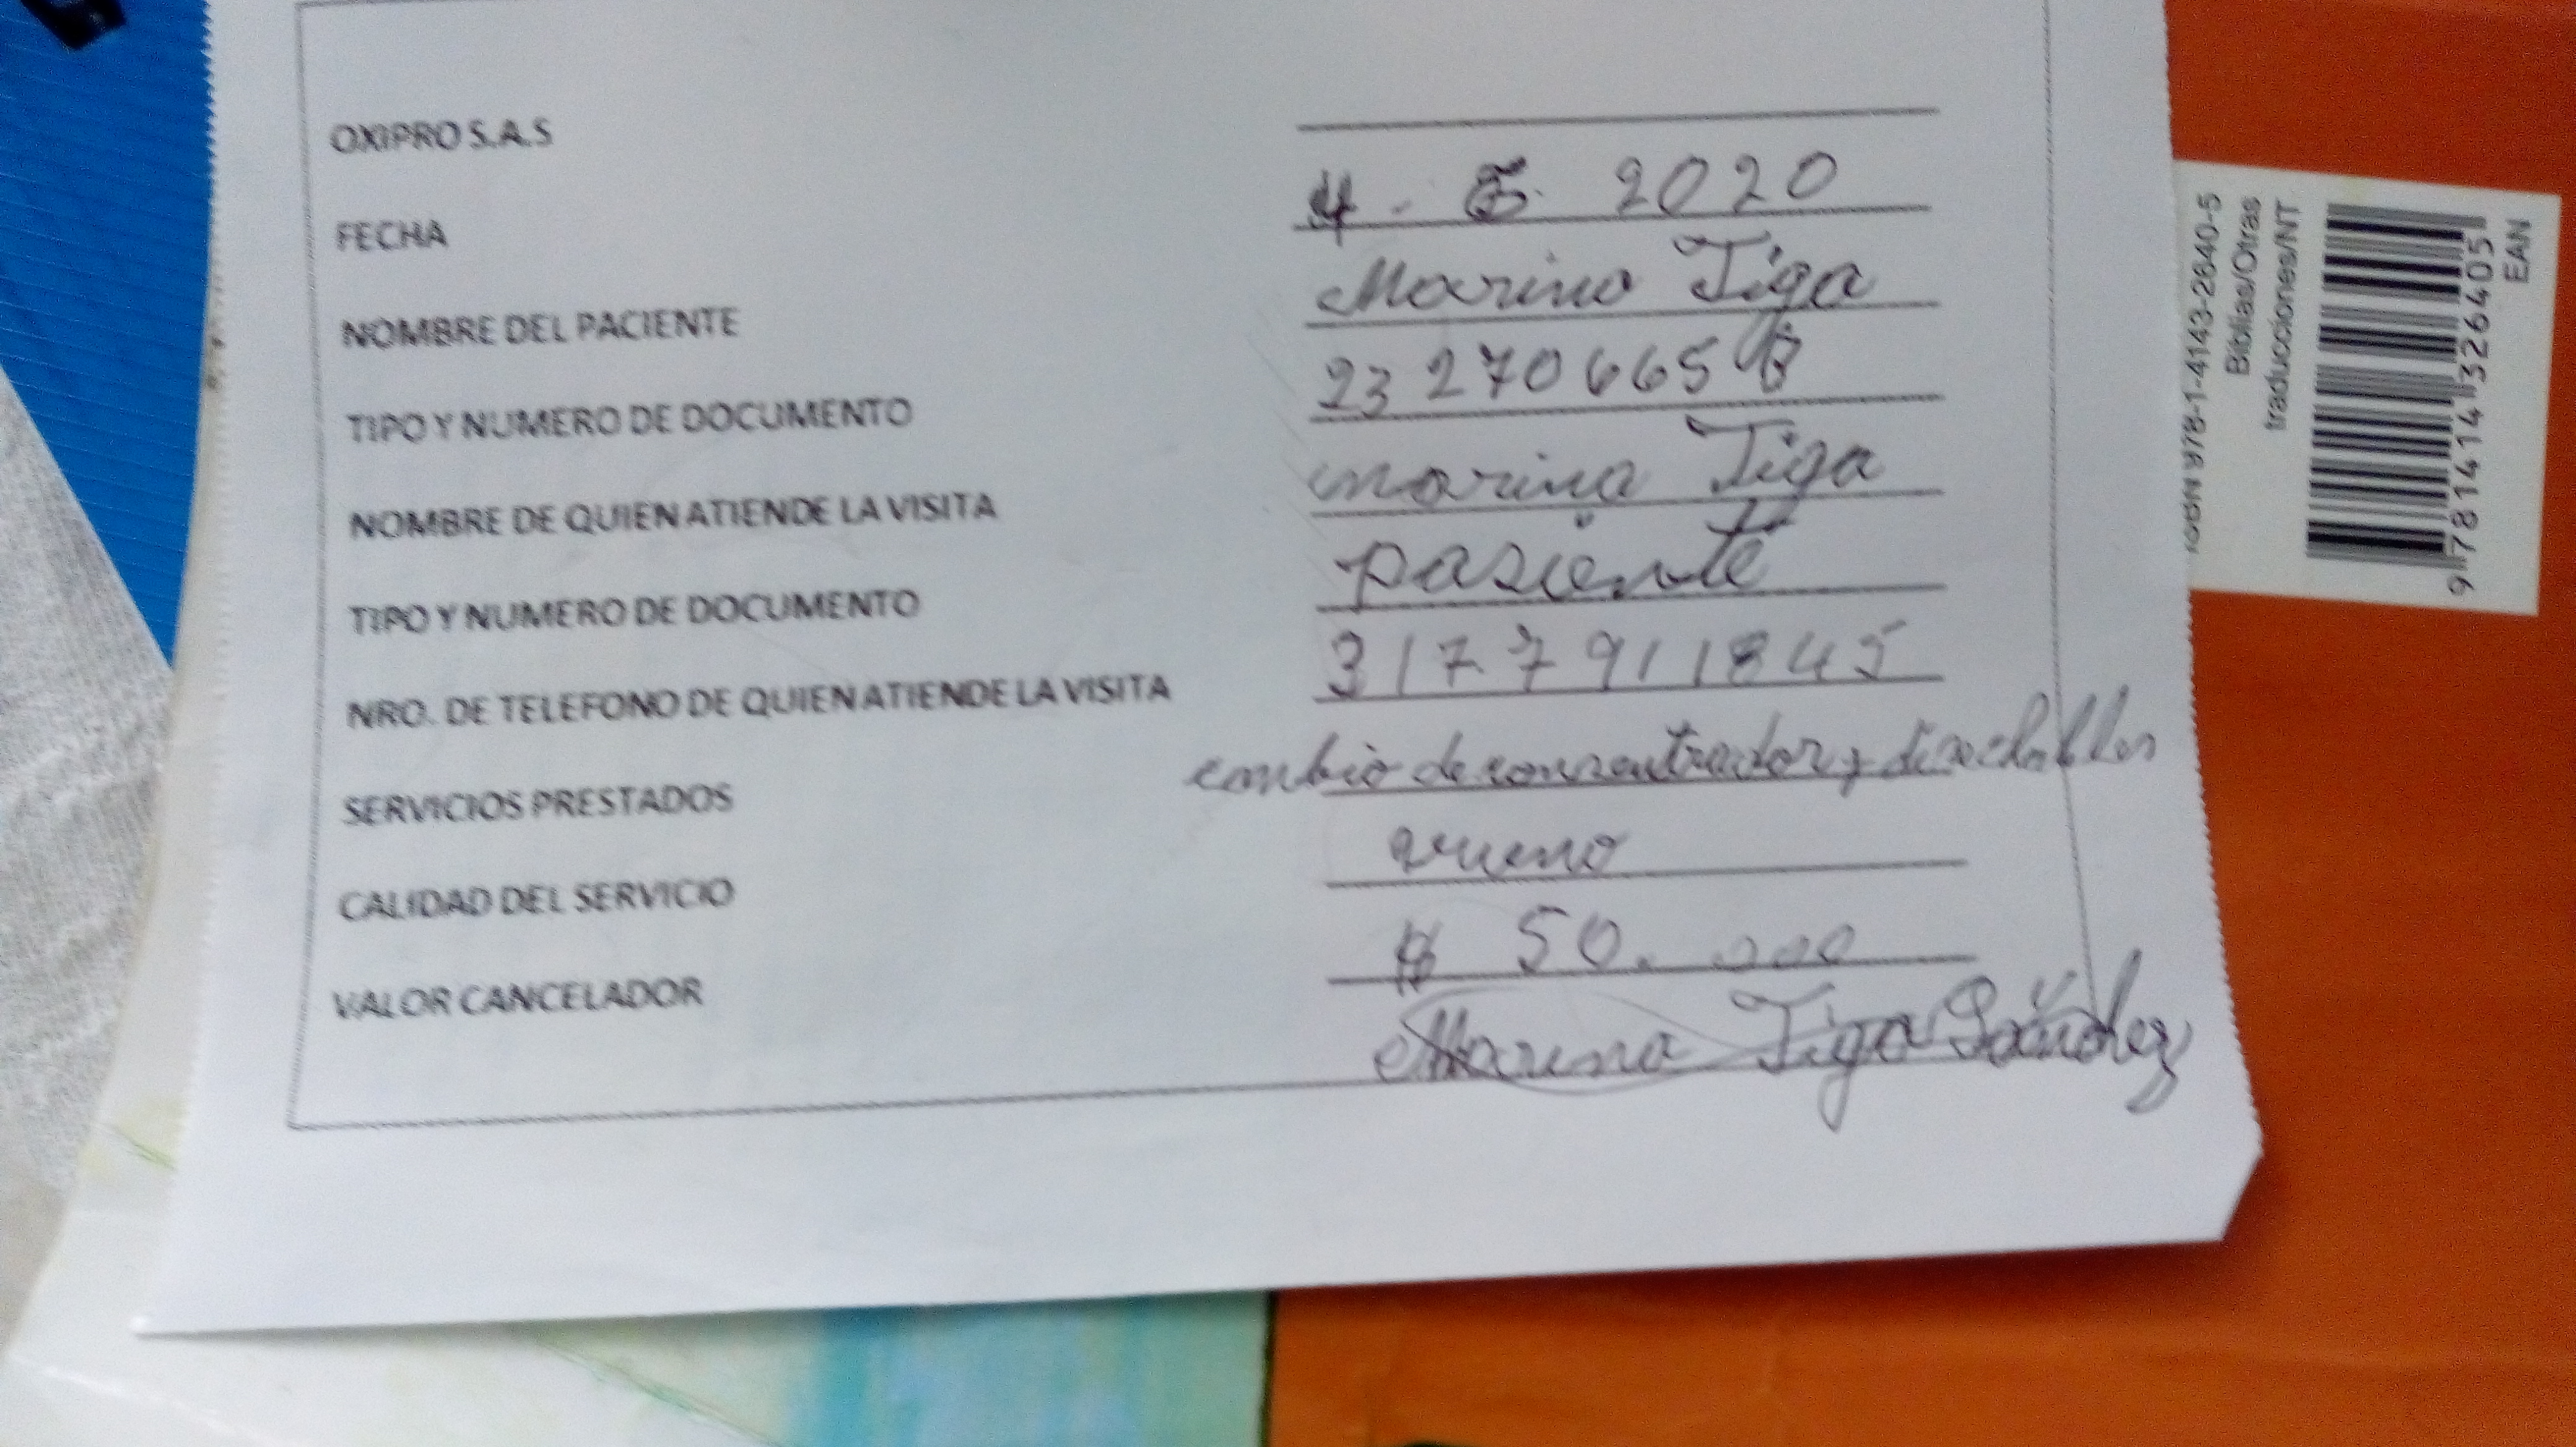 OXIPRO S.A.S
FECHA 4 - 5 - 2020
NOMBRE DEL PACIENTE Marina Tiga
TIPO Y NUMERO DE DOCUMENTO 23 270665
NOMBRE DE QUIEN ATIENDE LA VISITA marina Tiga
TIPO Y NUMERO DE DOCUMENTO pasiente
NRO. DE TELEFONO DE QUIEN ATIENDE LA VISITA 3177911845
SERVICIOS PRESTADOS cambio de consentrador y
CALIDAD DEL SERVICIO vueno
VALOR CANCELADOR $ 50.000
Marina Tiga Sánchez
ISBN 978-1-4143-2640-5
Biblias/Otras
traducciones/NT
9 781414 326405
EAN